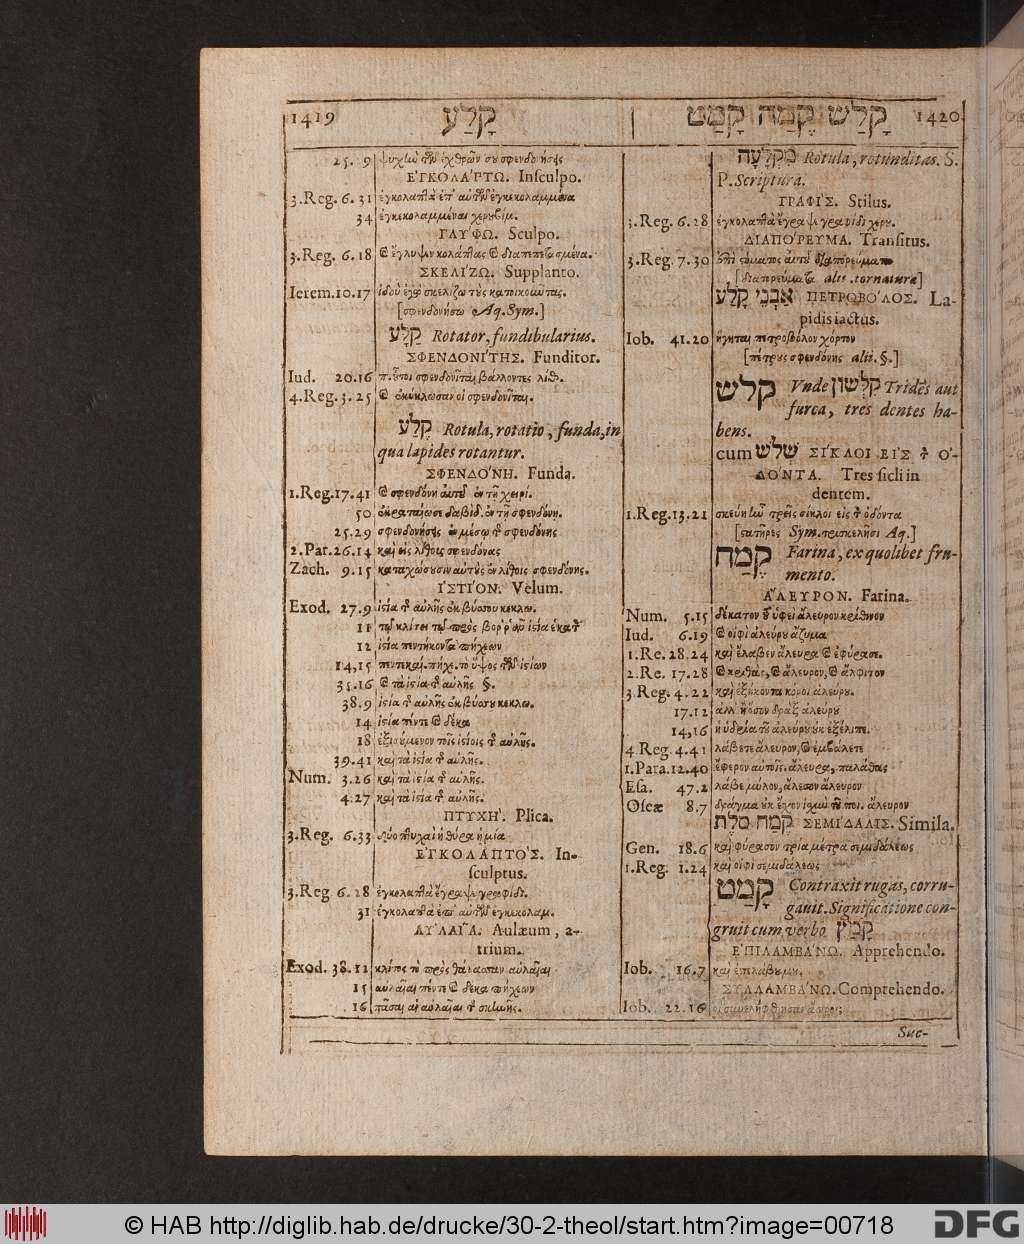 1419 קָלַע
קָלַשׁ קֶמַח קָמַט 1420
25. 9 ψυχὴν τῶν ἐχθρῶν σου σφενδονήσεις
ΕΓΚΟΛΑΠΤΩ. Insculpo.
3.Reg. 6. 31 ἐγκολαπτὰ ἐπ' αὐτῶν ἐγκεκολαμμένα
34 ἐγκεκολαμμέναι χερυβίμ.
ΓΛΥΦΩ. Sculpo.
3.Reg. 6.18 καὶ ἔγλυψεν κολάπτας καὶ διαπεπετασμένα.
ΣΚΕΛΙΖΩ. Supplanto.
Ierem.10.17 ἰδοὺ ἐγὼ σκελίζω τοὺς κατοικοῦντας.
[σφενδονήσω Aq. Sym.]
קַלָּע Rotator, fundibularius.
ΣΦΕΝΔΟΝΙΤΗΣ. Funditor.
Iud. 20.16 π. οὗτοι σφενδονῖται βάλλοντες λίθ.
4.Reg. 3. 25 καὶ ἐκύκλωσαν οἱ σφενδονῖται.
קֶלַע Rotula, rotatio, funda, in
qua lapides rotantur.
ΣΦΕΝΔΟΝΗ. Funda.
1.Reg.17.41 καὶ σφενδόνη αὐτοῦ ἐν τῇ χειρί.
50 ἐκραταίωσε δαβὶδ ἐν τῇ σφενδόνῃ.
25.29 σφενδονήσεις ἐν μέσῳ τῆς σφενδόνης
2.Par.26.14 καὶ εἰς λίθους σφενδόνας
Zach. 9.15 καταχώσουσιν αὐτοὺς ἐν λίθοις σφενδόνης.
ΙΣΤΙΟΝ. Velum.
Exod. 27.9 ἱστία τῆς αὐλῆς ἐκ βύσσου κεκλω.
11 τῷ κλίτει τῷ πρὸς βορρᾶν ἱστία ἑκατ
12 ἱστία πεντήκοντα πήχεων
14,15 πεντεκαί. πήχε. τὸ ὕψος τῶν ἱστίων
35.16 καὶ τὰ ἱστία τῆς αὐλῆς §.
38.9 ἱστία τῆς αὐλῆς ἐκ βύσσου κεκλω.
14 ἱστία πέντε καὶ δέκα
18 ἐξισούμενον τοῖς ἱστίοις τῆς αὐλῆς.
39.41 καὶ τὰ ἱστία τῆς αὐλῆς.
Num. 3.26 καὶ τὰ ἱστία τῆς αὐλῆς.
4.27 καὶ τὰ ἱστία τῆς αὐλῆς.
ΠΤΥΧΗ. Plica.
3.Reg. 6.33 δύο πτυχαὶ ἡ θύρα ἡ μία
ΕΓΚΟΛΑΠΤΟΣ. In-
sculptus.
3.Reg 6.28 ἐγκολαπτὰ ἔγραψε γραφίδι.
31 ἐγκολαπτὰ ἐπ' αὐτῶν ἐγκεκολαμ.
ΑΥΛΑΙΑ. Aulæum, a-
trium.
Exod. 38.12 κλίτος τὸ πρὸς θάλασσαν αὐλαῖαι
15 αὐλαῖαι πέντε καὶ δέκα πήχεων
16 πᾶσαι αἱ αὐλαῖαι τῆς σκηνῆς.
מִקְלָעָה Rotula, rotunditas. S.
P. Scriptura.
ΓΡΑΦΙΣ. Stilus.
3.Reg. 6.28 ἐγκολαπτὰ ἔγραψε γραφίδι χερυ.
ΔΙΑΠΟΡΕΥΜΑ. Transitus.
3.Reg. 7.30 ἐπὶ στόματος αὐτοῦ διαπορεύματα
[διατορεύματα alii. tornaturæ]
אַבְנֵי קֶלַע ΠΕΤΡΟΒΟΛΟΣ. La-
pidis iactus.
Iob. 41.20 ἥγηται πετροβόλον χόρτον
[πέτρους σφενδόνης alii. §.]
קלש Vnde קִלְּשׁוֹן Tridēs aut
furca, tres dentes ha-
bens.
cum שְׁלֹשׁ ΣΙΚΛΟΙ ΕΙΣ τ Ο-
ΔΟΝΤΑ. Tres sicli in
dentem.
1.Reg.13.21 σκεύη ἦν τρεῖς σίκλοι εἰς τὸν ὀδόντα
[στατῆρες Sym. τρισκελῆσι Aq.]
קֶמַח Farina, ex quolibet fru-
mento.
ΑΛΕΥΡΟΝ. Farina.
Num. 5.15 δέκατον τοῦ ὑφεὶ ἄλευρον κρίθινον
Iud. 6.19 καὶ οἰφὶ ἀλεύρου ἄζυμα
1.Re.28.24 καὶ ἔλαβεν ἄλευρα καὶ ἐφύρασε.
2.Re. 17.28 καὶ κριθὰς, καὶ ἄλευρον, καὶ ἄλφιτον
3.Reg. 4.22 καὶ ἑξήκοντα κόροι ἀλεύρου.
17.12 ἀλλ' ἢ ὅσον δρὰξ ἀλεύρου
14,16 ἡ ὑδρία τοῦ ἀλεύρου οὐκ ἐξέλιπε.
4 Reg. 4.41 λάβετε ἄλευρον, καὶ ἐμβάλετε
1.Para.12.40 ἔφερον αὐτοῖς. ἄλευρα, παλάθας
Esa. 47.2 λάβε μύλον, ἄλεσον ἄλευρον
Oseæ 8.7 δράγμα οὐκ ἔχον ἰσχὺν τοῦ ποι. ἄλευρον
קֶמַח סֹלֶת ΣΕΜΙΔΑΛΙΣ. Simila.
Gen. 18.6 καὶ φύρασον τρία μέτρα σεμιδάλεως
1.Reg. 1.24 καὶ οἰφὶ σεμιδάλεως
קָמַט Contraxit rugas, corru-
gauit. Significatione con-
gruit cum verbo קָמַץ
ΕΠΙΛΑΜΒΑΝΩ. Apprehendo.
Iob. 16.7 καὶ ἐπελάβου μου.
ΣΥΛΛΑΜΒΑΝΩ. Comprehendo.
Iob. 22.16 οἳ συνελήφθησαν ἄωροι
Suc-
© HAB http://diglib.hab.de/drucke/30-2-theol/start.htm?image=00718
DFG